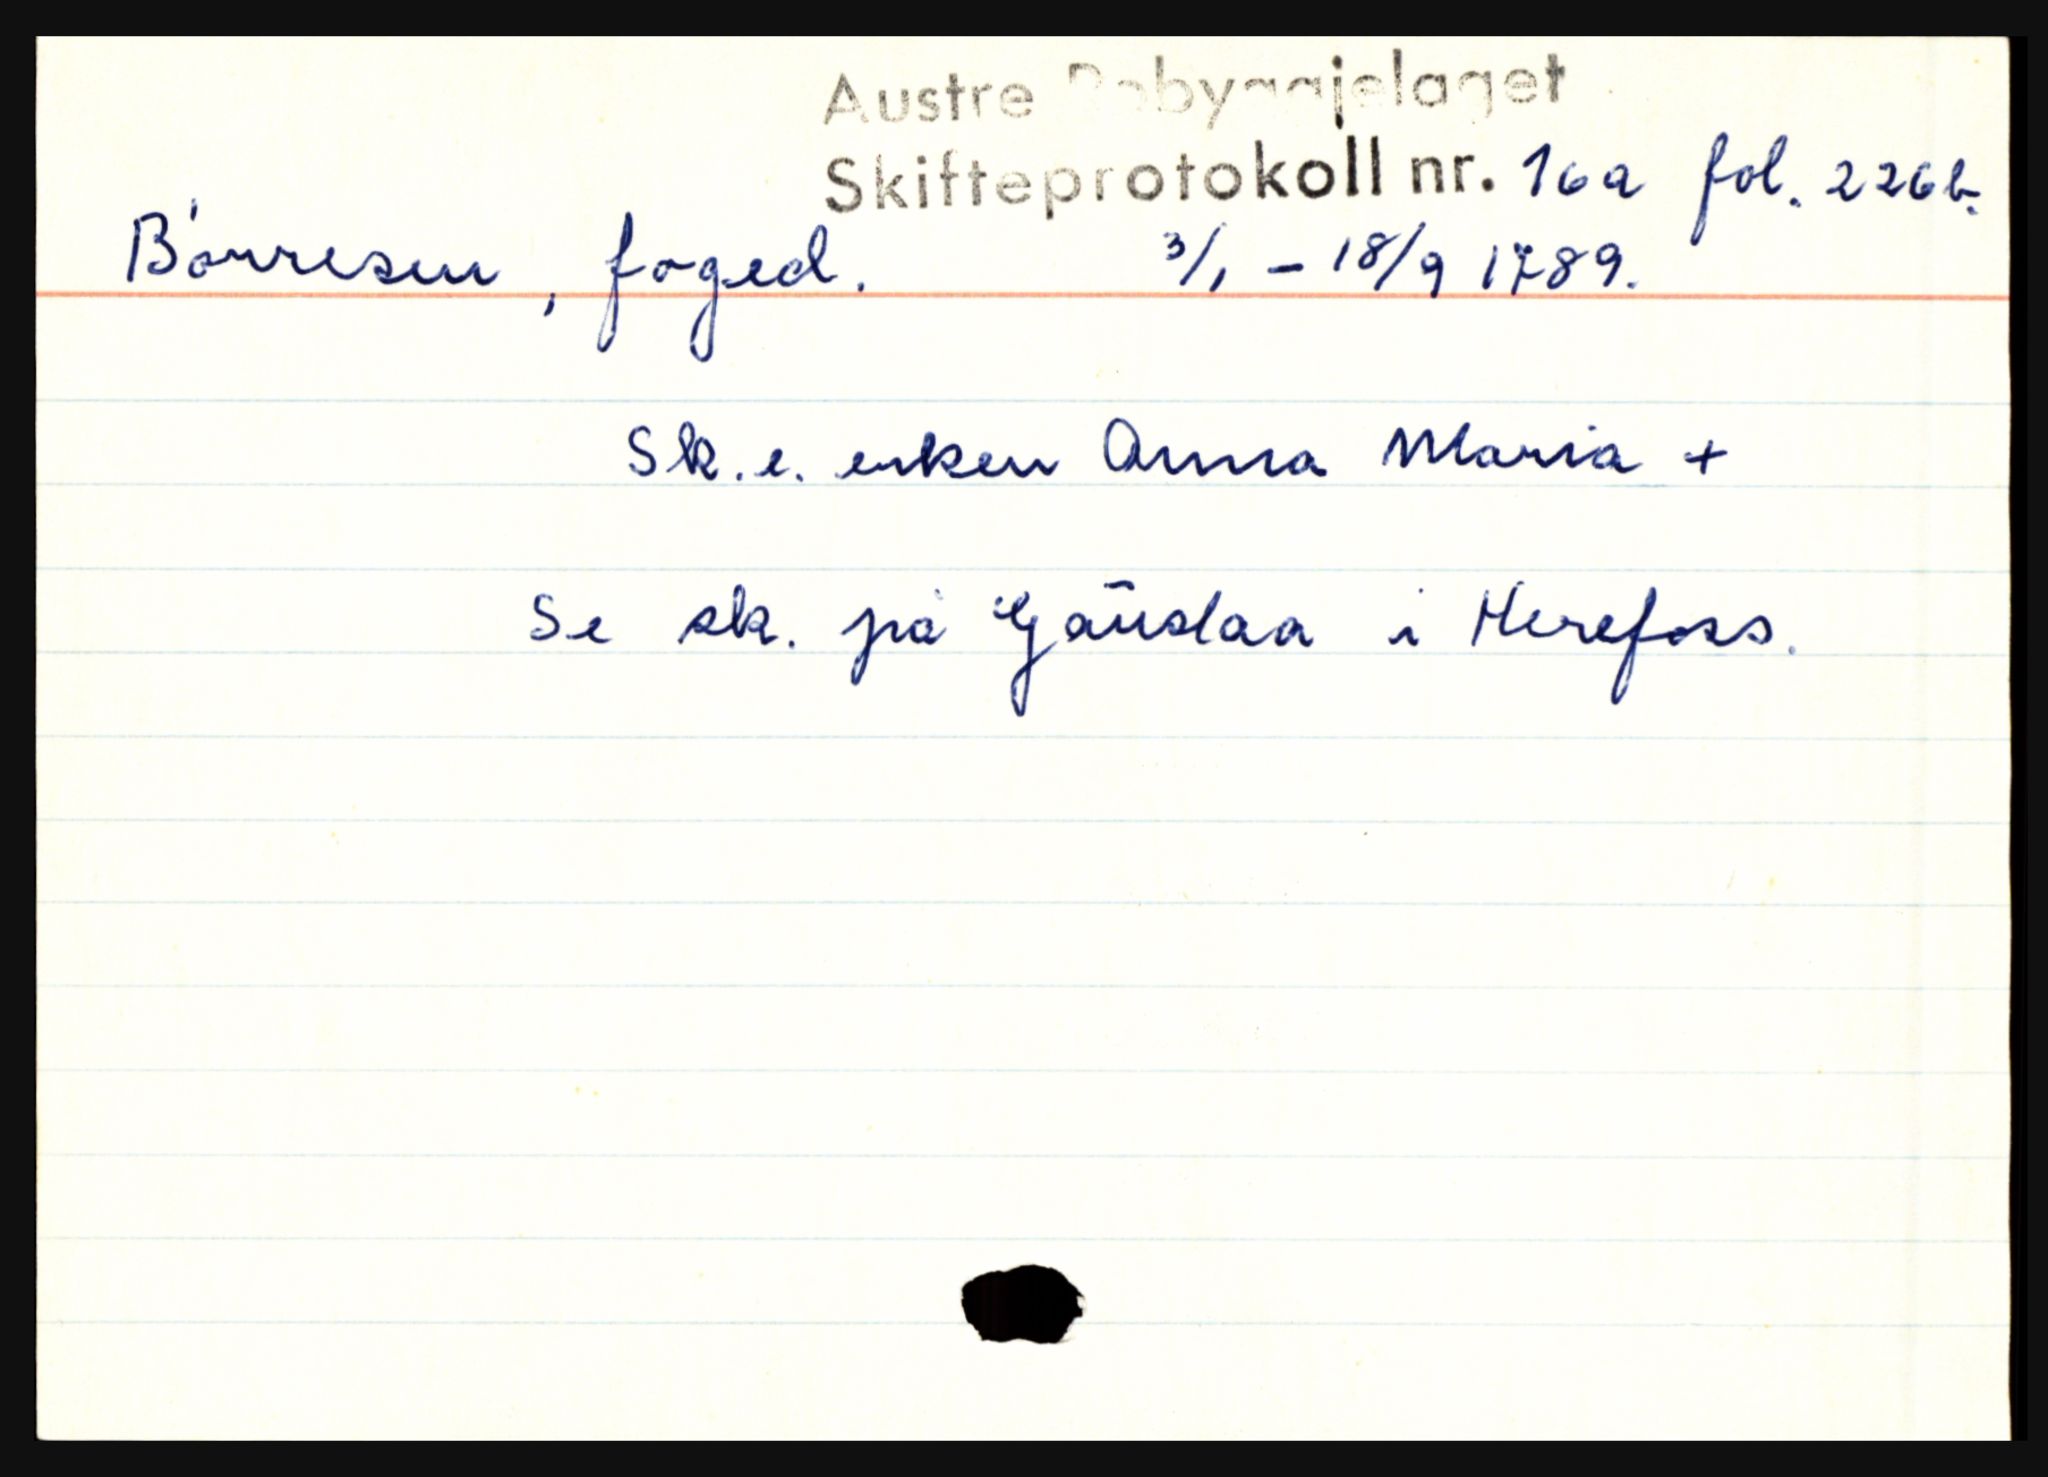 Austre Robyggjelaget
Skifteprotokoll nr. 16a fol. 226b.
Børresen, foged. 3/1 - 18/9 1789.
Sk. e. enken Anna Maria +
Se sk. på Gaūslaa i Herefoss.